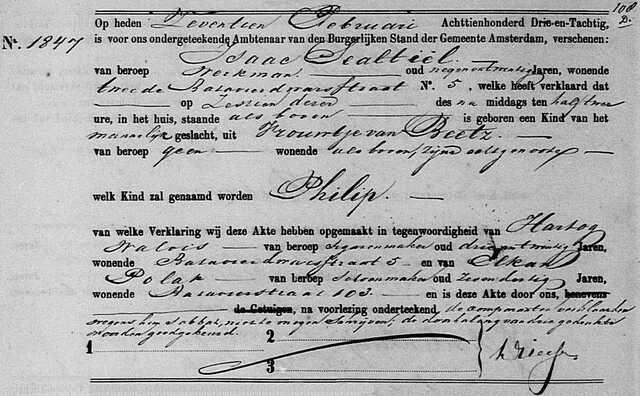 108
D.
Op heden Zeventien Februari Achttienhonderd Drie-en-Tachtig,
No. 1847 is voor ons ondergeteekende Ambtenaar van den Burgerlijken Stand der Gemeente Amsterdam, verschenen:
Isaac Sealtiël
van beroep Werkman oud negenentwintig Jaren, wonende
tweede Batavierdwarsstraat No. 5, welke heeft verklaard dat
op Zestien dezer des na middags ten half twee
ure, in het huis, staande als boven is geboren een Kind van het
mannelijk geslacht, uit Vrouwtje van Beetz
van beroep geen wonende als boven, zijne echtgenoote
welk Kind zal genaamd worden Philip.
van welke Verklaring wij deze Akte hebben opgemaakt in tegenwoordigheid van Hartog
Walvis van beroep Sigarenmaker oud drieentwintig Jaren,
wonende Batavierdwarsstraat 5 en van Elkan
Polak van berbep Schoenmaker oud Zesendertig Jaren,
wonende Batavierstraat 103. en is deze Akte door ons, benevens
de Getuigen, na voorlezing onderteekend, de comparanten verklaarden
wegens hun Sabbat, niet te mogen Schrijven; de doorhaling van drie gedrukte
woorden goedgekeurd.
1 2
3